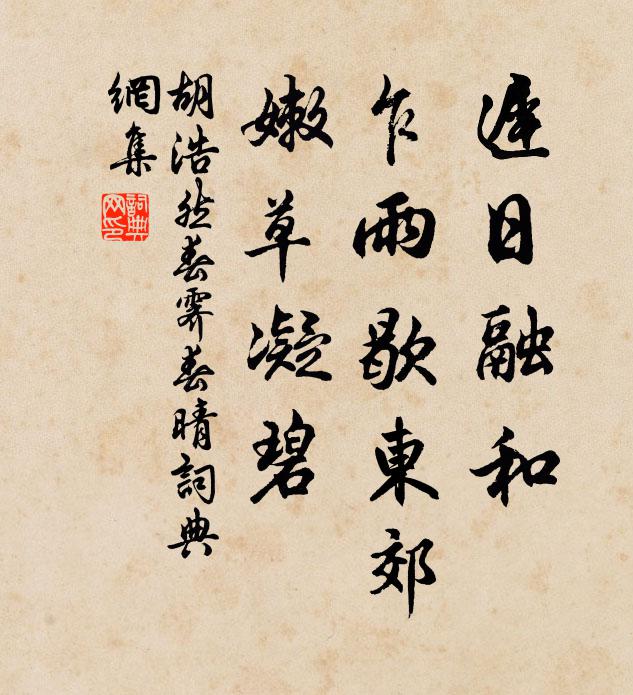 遲日融和
乍雨歇東郊
嫩草凝碧
胡浩然春霽春晴詞典
網集
詞典网印